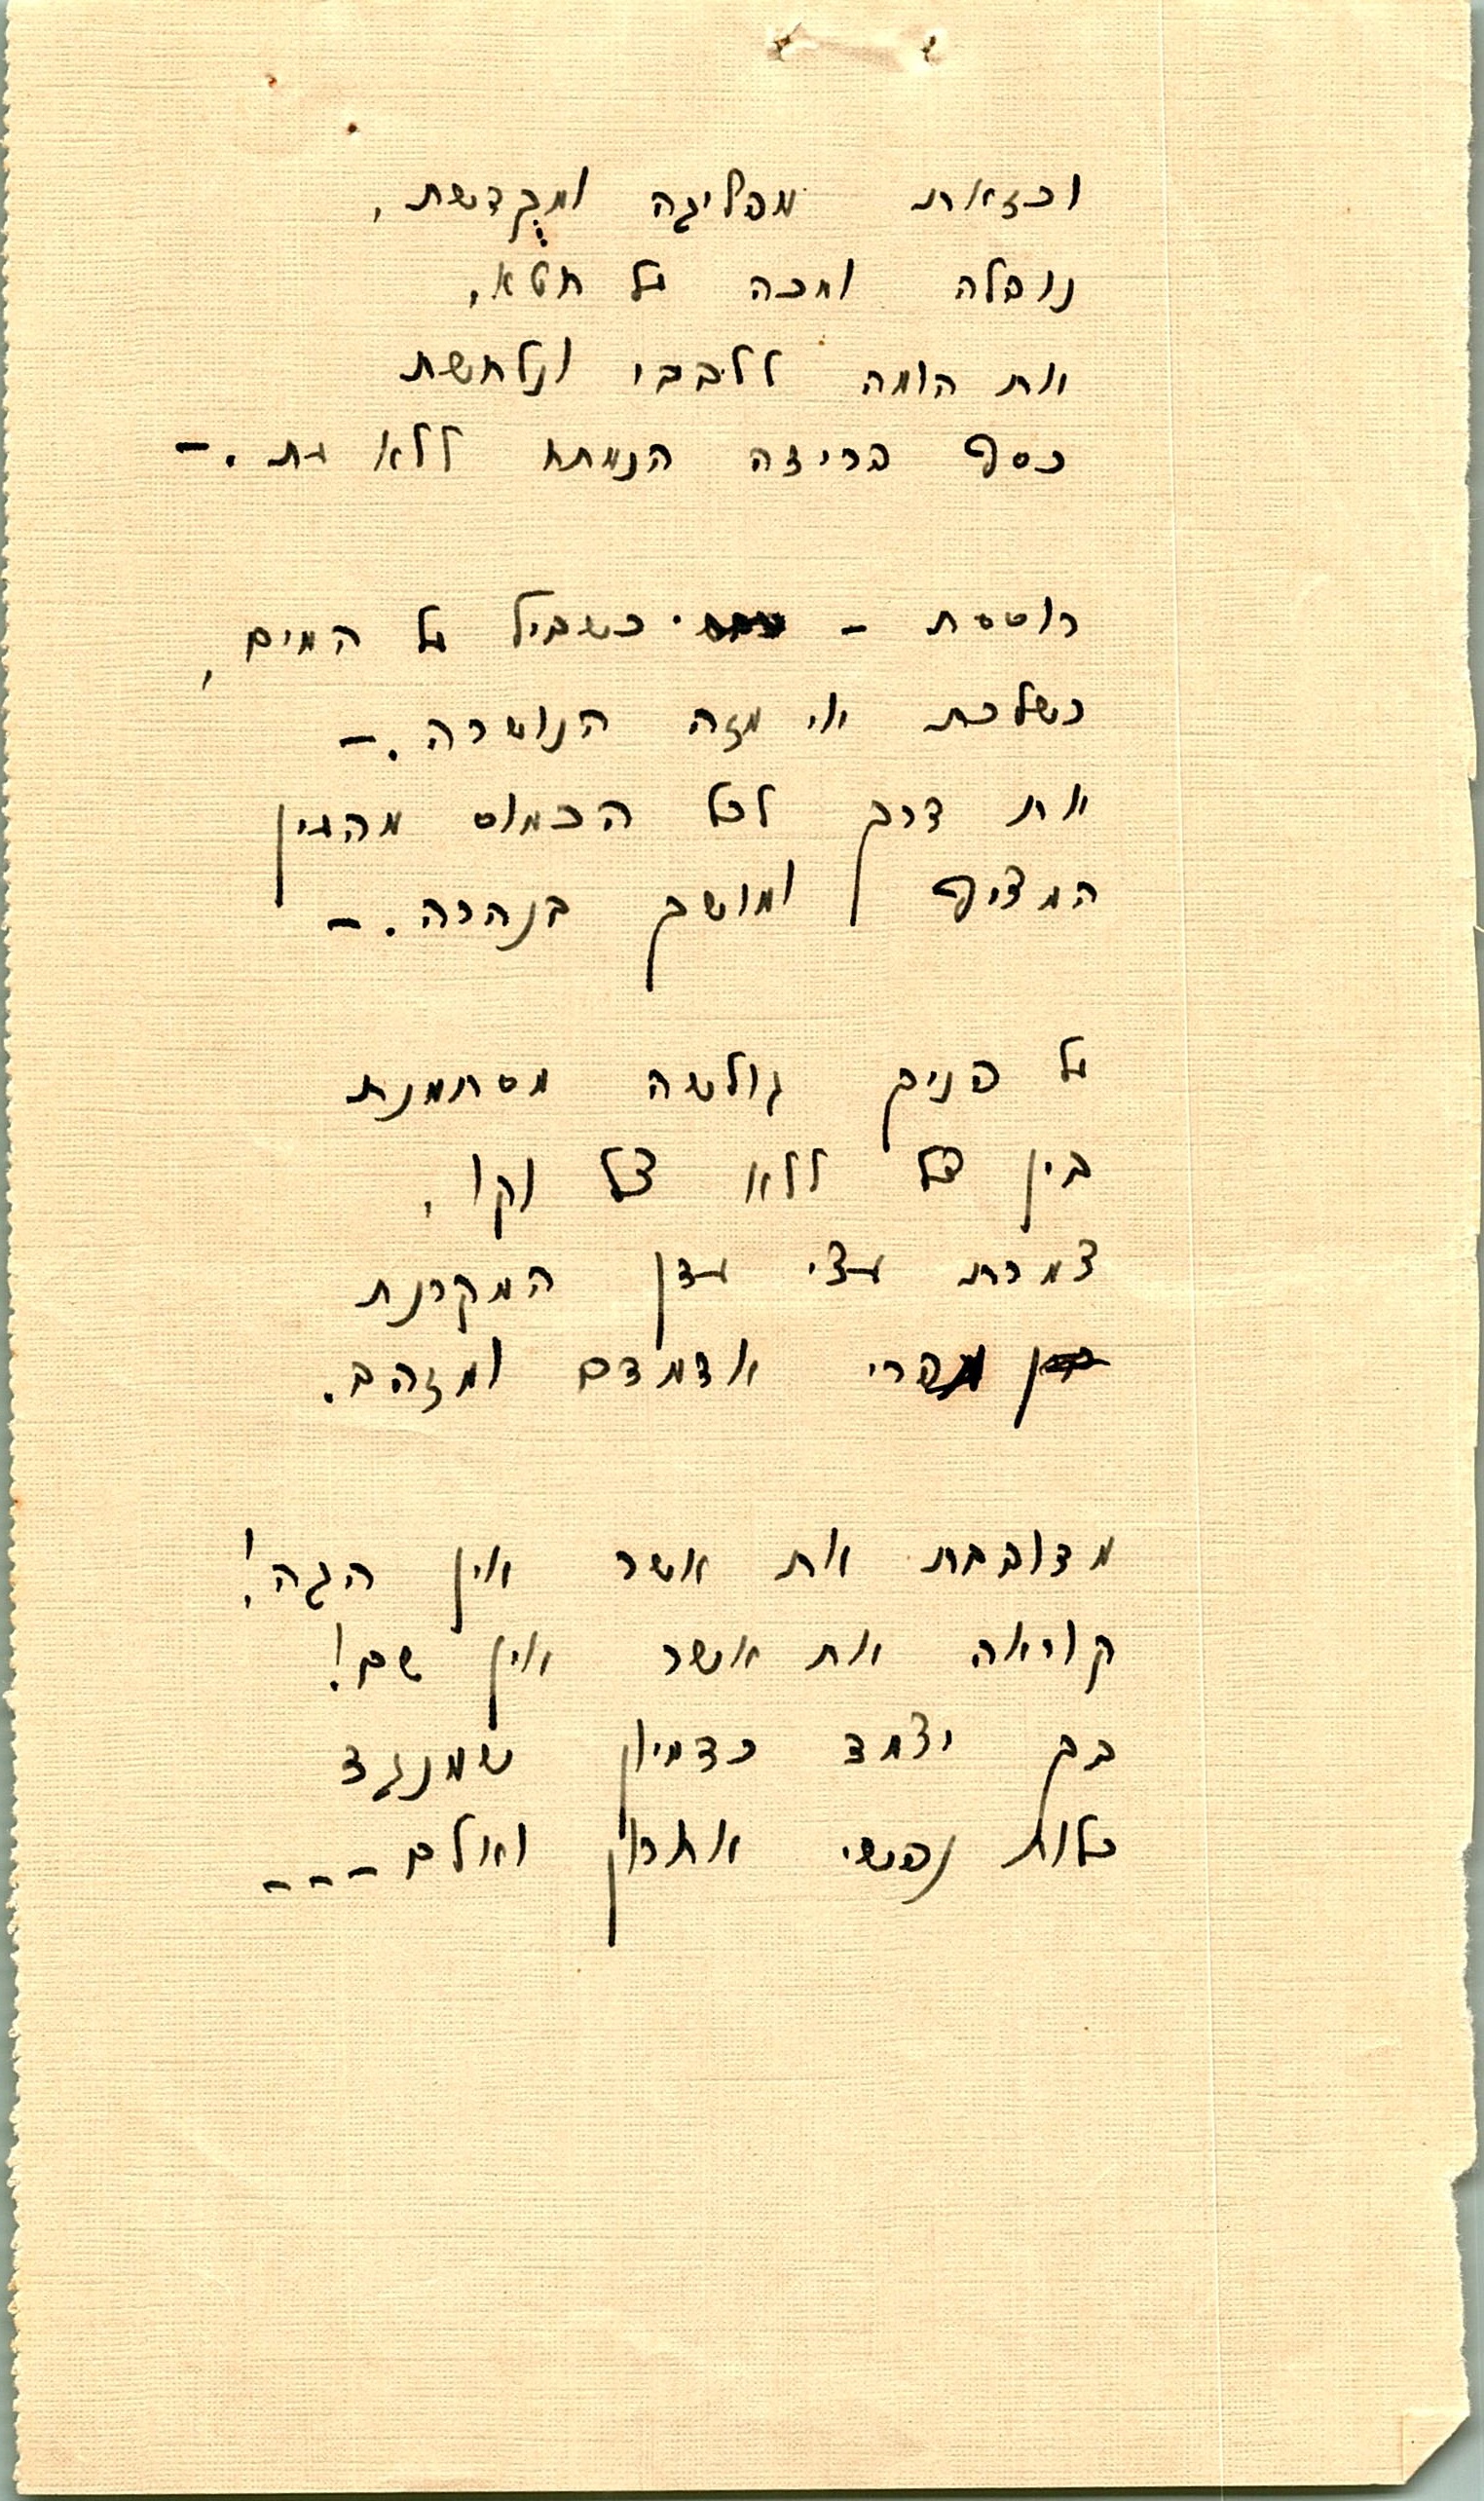 וכזאת מפליגה ומקדשת,
נובלה ומכה על חטא,
את הומה ללבבי ונלחשת
כסף בריזה הנמתח ללא עת. –
רוטטת – כשביל על המים,
כשלכת אי מזה הנושרה. –
את דרך לכל הכמוס מהעין
המציף ומושך בנהרה. –
על פניך גולשה מסתמנת
בין צל ללא צל וקו,
צמרת עצי עדן המקרנת
פרי אדמדם ומזהב.
מדובבת את אשר אין הגה!
קוראה את אשר אין שם!
בך יצמד כדמיון שמנגד
כלות נפשי אחרון ואולם - - -